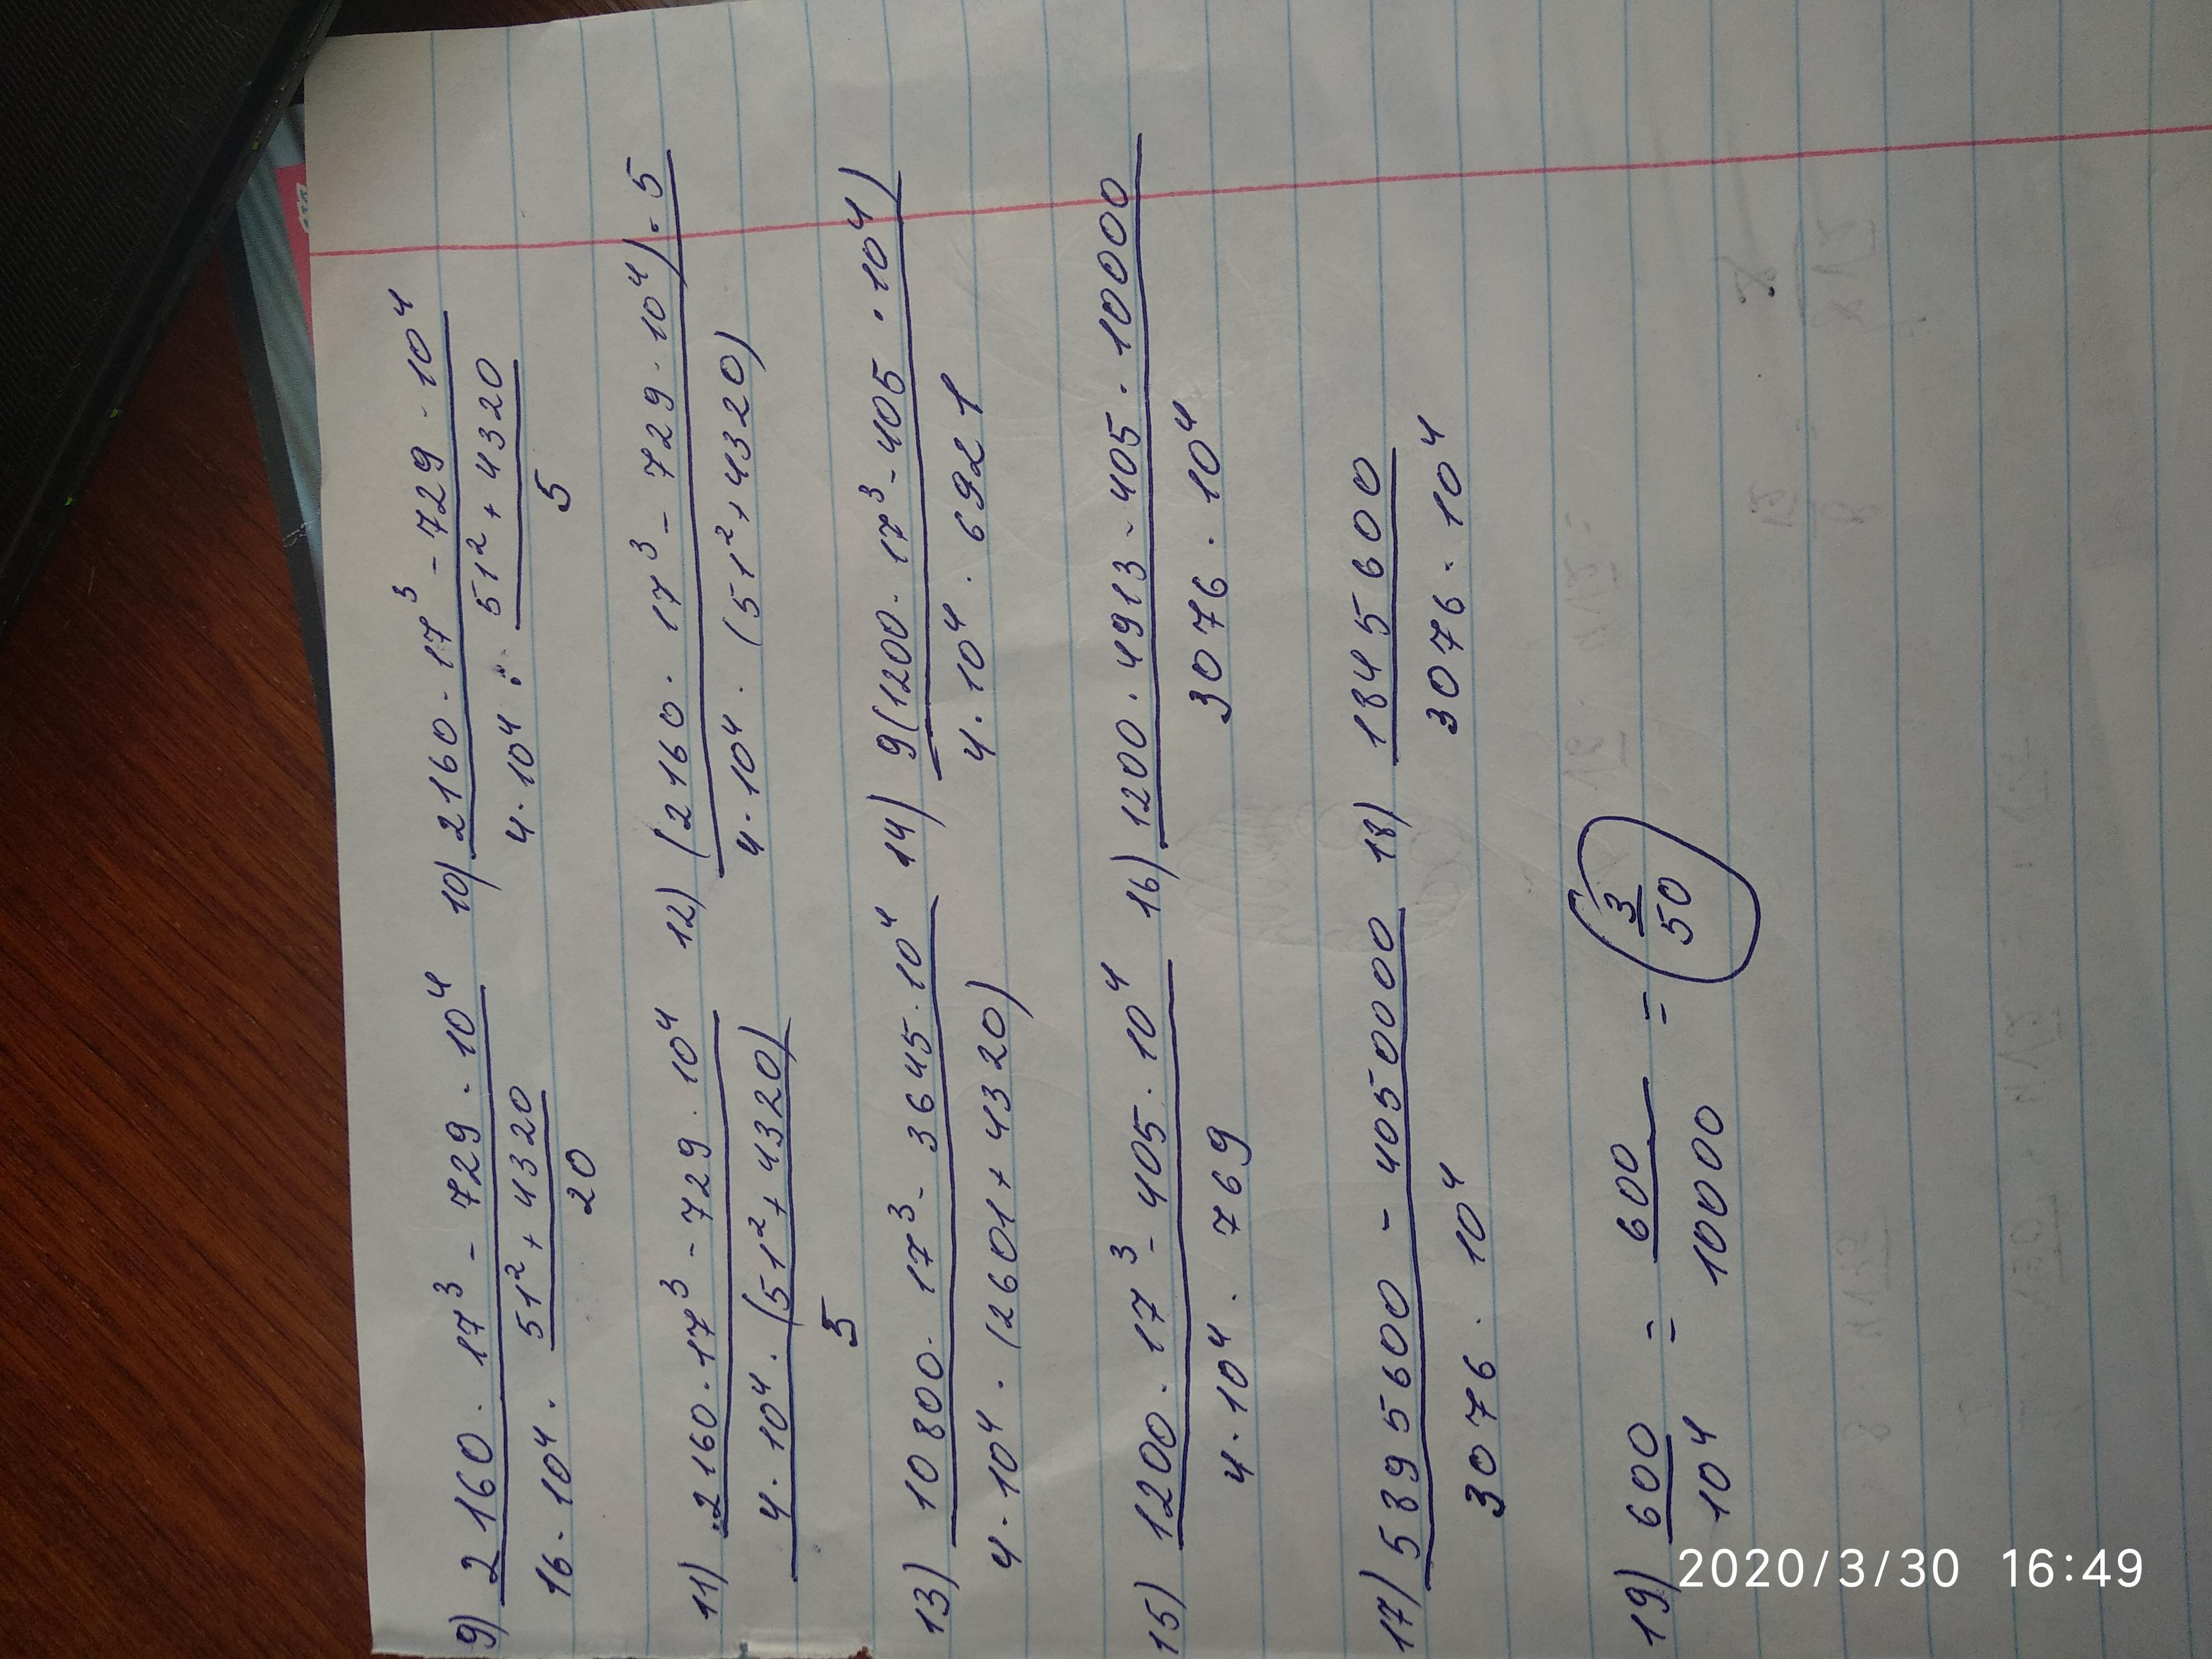 9) 2160 · 17³ - 729 · 10⁴ / 16 · 10⁴ · 51² + 4320 / 20   10) 2160 · 17³ - 729 · 10⁴ / 4 · 10⁴ : 51² + 4320 / 5
11) 2160 · 17³ - 729 · 10⁴ / 4 · 10⁴ · (51² + 4320) / 5   12) (2160 · 17³ - 729 · 10⁴) · 5 / 4 · 10⁴ · (51² + 4320)
13) 10800 · 17³ - 3645 · 10⁴ / 4 · 10⁴ · (2601 + 4320)   14) 9(1200 · 17³ - 405 · 10⁴) / 4 · 10⁴ · 6921
15) 1200 · 17³ - 405 · 10⁴ / 4 · 10⁴ · 769   16) 1200 · 4913 - 405 · 10000 / 3076 · 10⁴
17) 5895600 - 4050000 / 3076 · 10⁴   18) 1845600 / 3076 · 10⁴
19) 600 / 10⁴ = 600 / 10000 = 3 / 50
2020/3/30 16:49